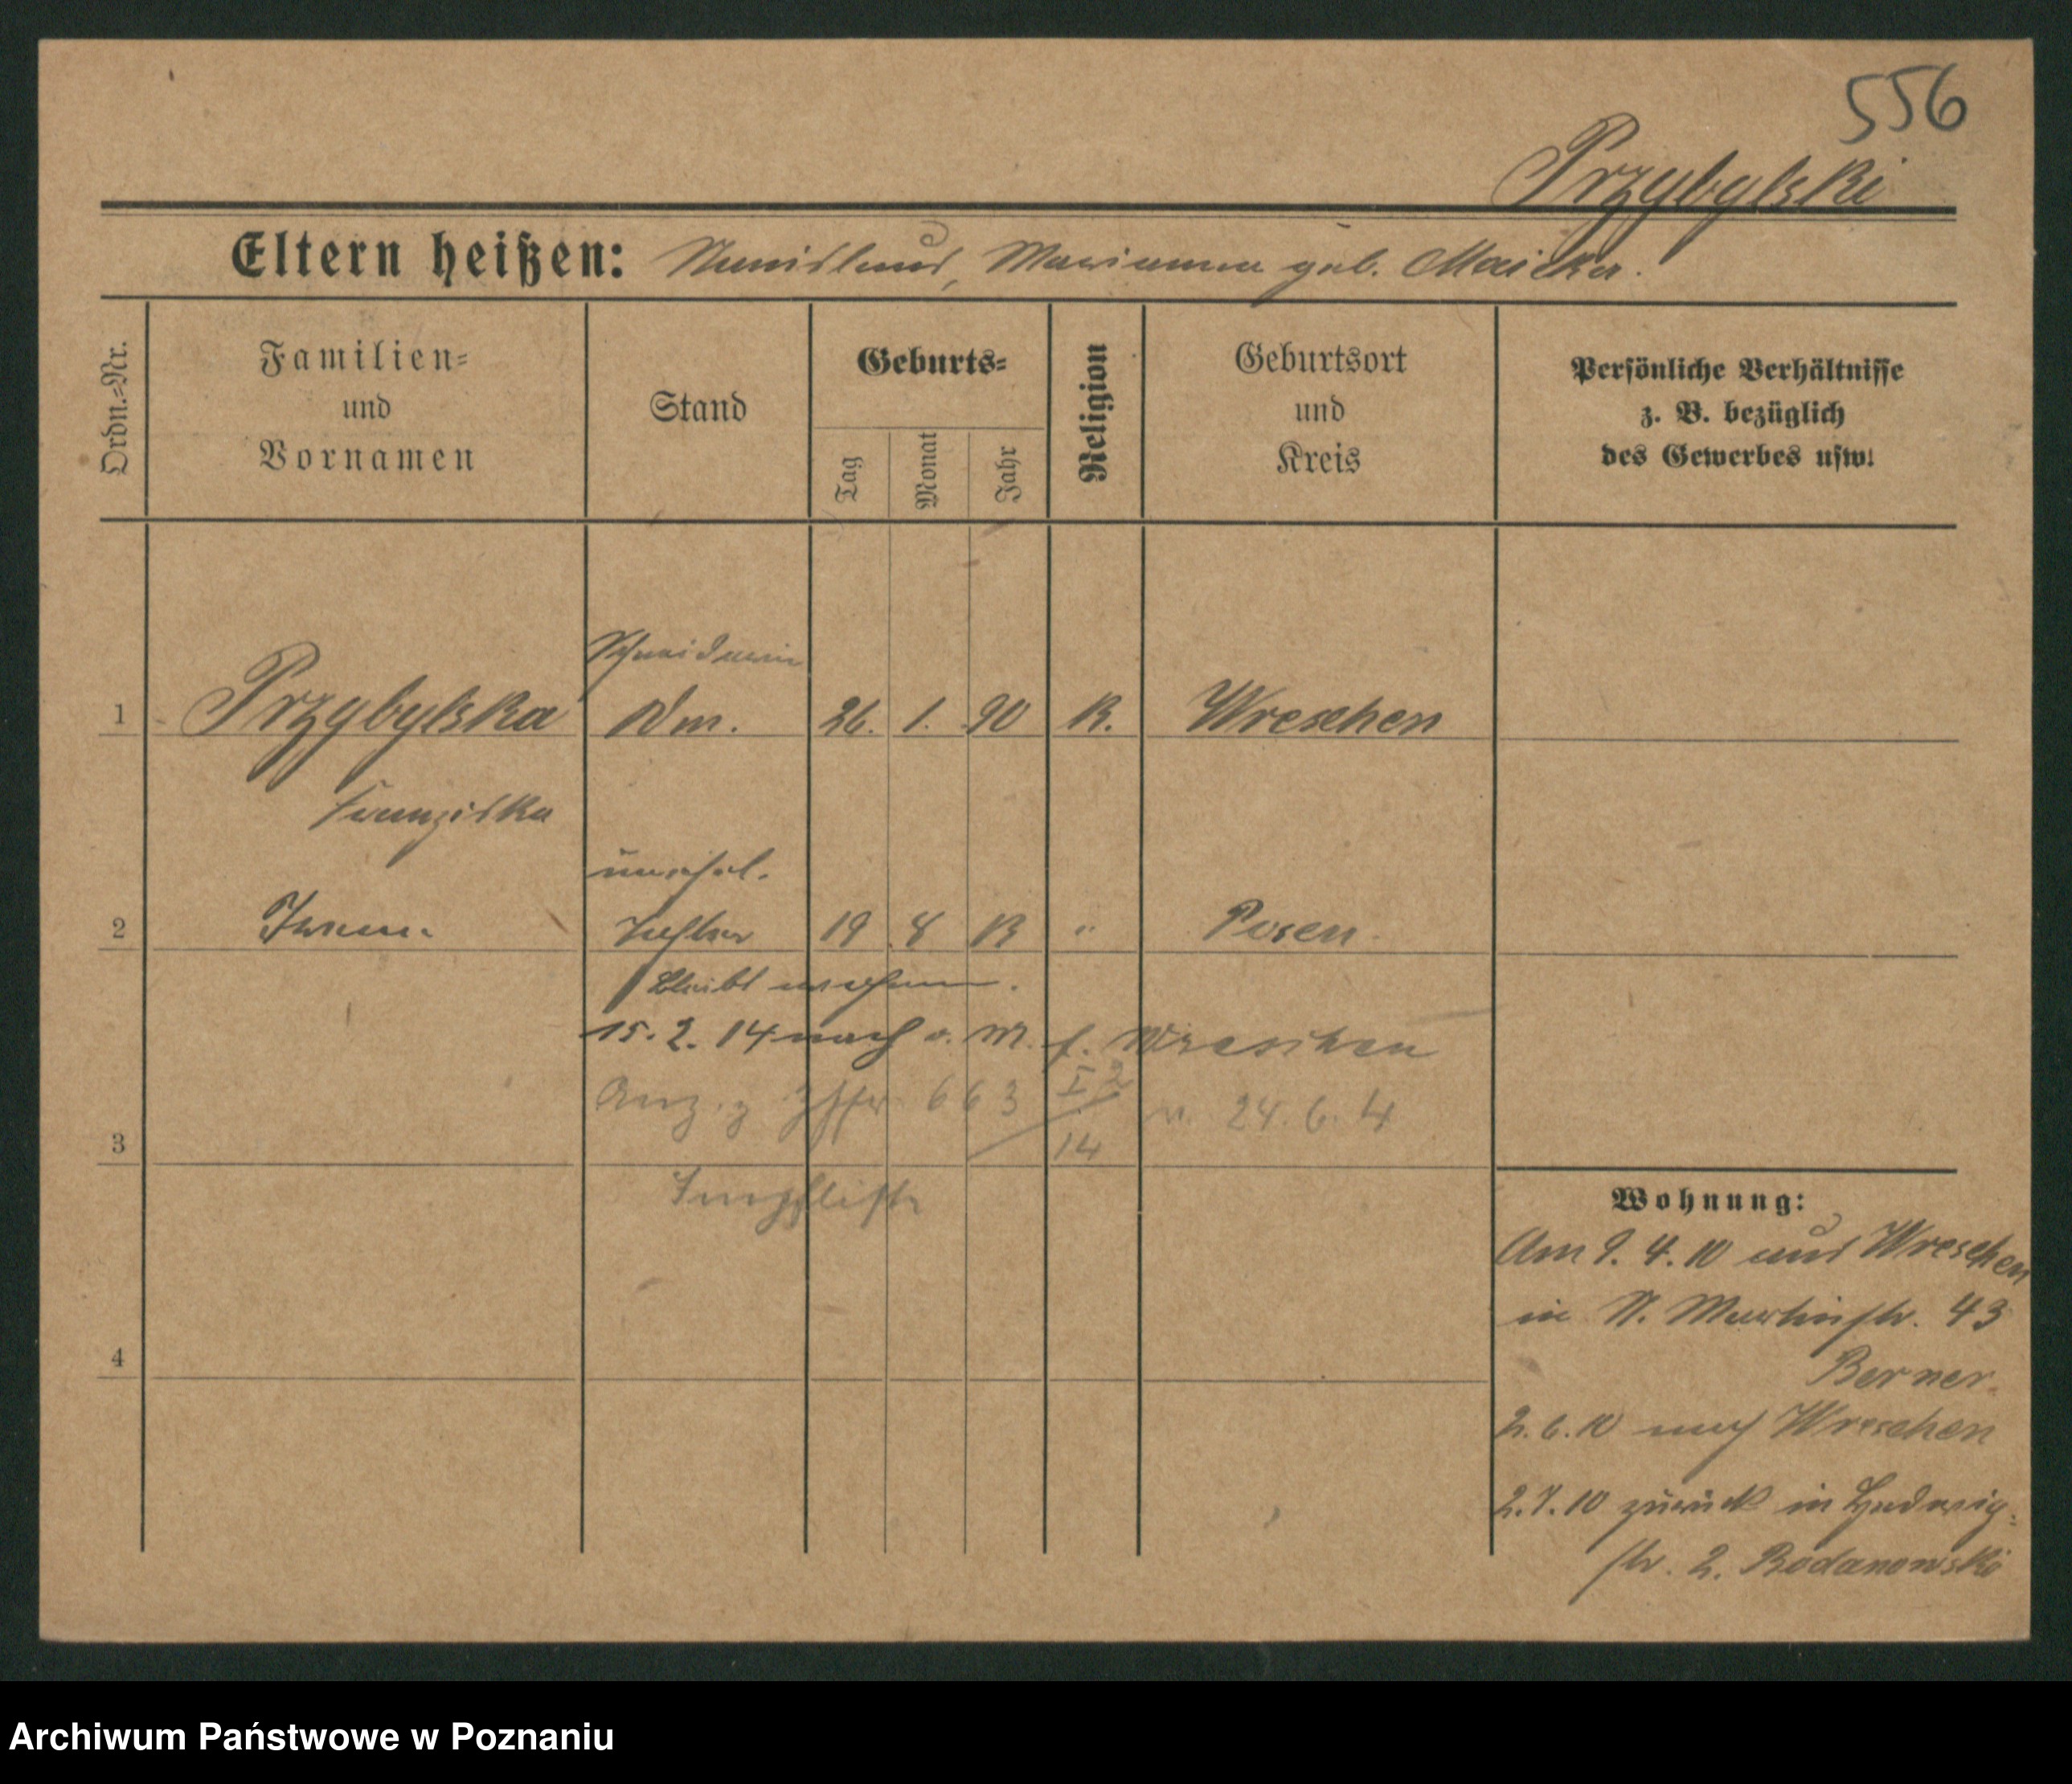 556
Przybylski
Eltern heißen: Stanislaus, Marianna geb. Maicka.
Ordn.-Nr.
Familien-
und
Vornamen
Stand
Geburts-
Tag
Monat
Jahr
Religion
Geburtsort
und
Kreis
Persönliche Verhältnisse
z. B. bezüglich
des Gewerbes usw.
Schneiderin
1 Przybylska 26. 1. 90 K. Wreschen
Franziska
unehel.
2 Tochter 19 8 13 " Posen
bleibt
15. 2. 14 nach Wreschen
663 I 2 / 14 v. 24. 6. 4
3
Wohnung:
Am 9. 4. 10 aus Wreschen
in St. Martinstr. 43
Berner
4
2. 6. 10 nach Wreschen
2. 7. 10 zurück in Ludwig-
str. 2. Bodanowski
Archiwum Państwowe w Poznaniu